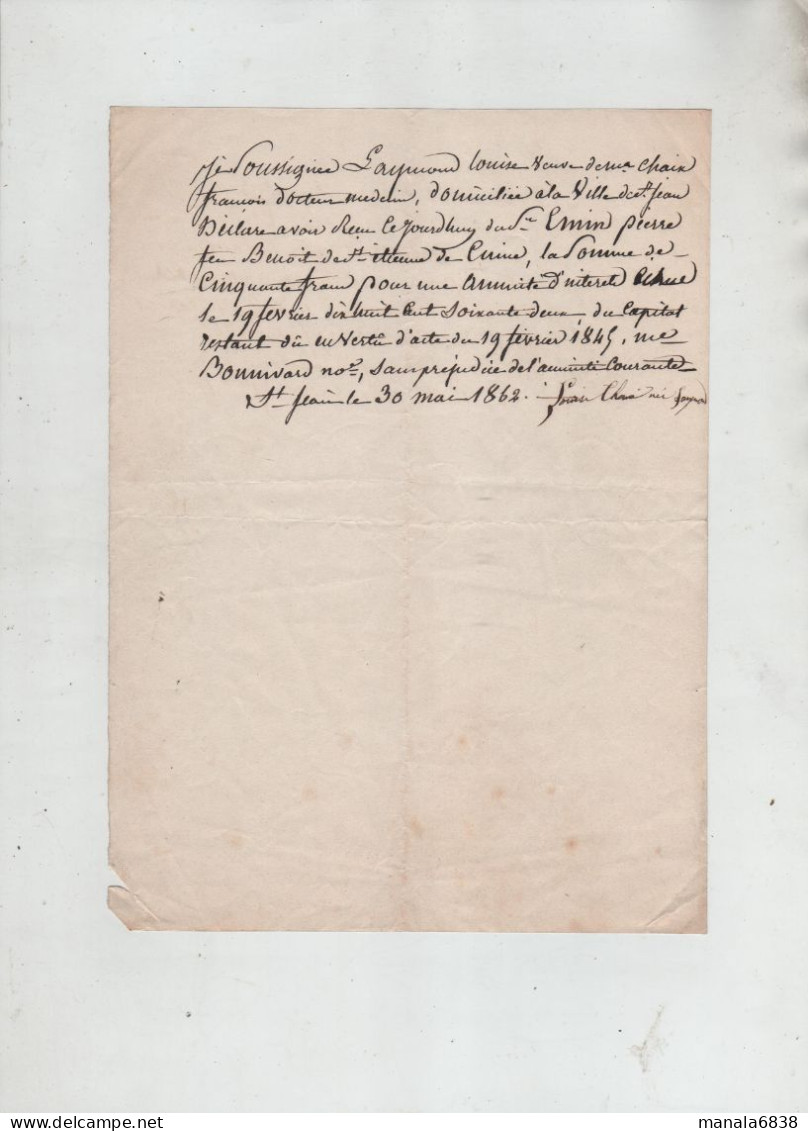 Je Soussignée Laymond louise veuve de mr Chaix
françois docteur medecin, domiciliée a la Ville de St Jean
Déclare avoir Reçu Ce jourdhuy du Sr Emin pierre
feu Benoit de St Etienne de Cuine, la Somme de
Cinquante franc pour une annuité d'interet échue
le 19 fevrier dix huit Cent Soixante deux, du Capital
restant dû en Vertu d'acte du 19 février 1845, me
Bonnivard nore, sans préjudice de l'annuité Courante
St Jean le 30 mai 1862. Chaix née
manala6838